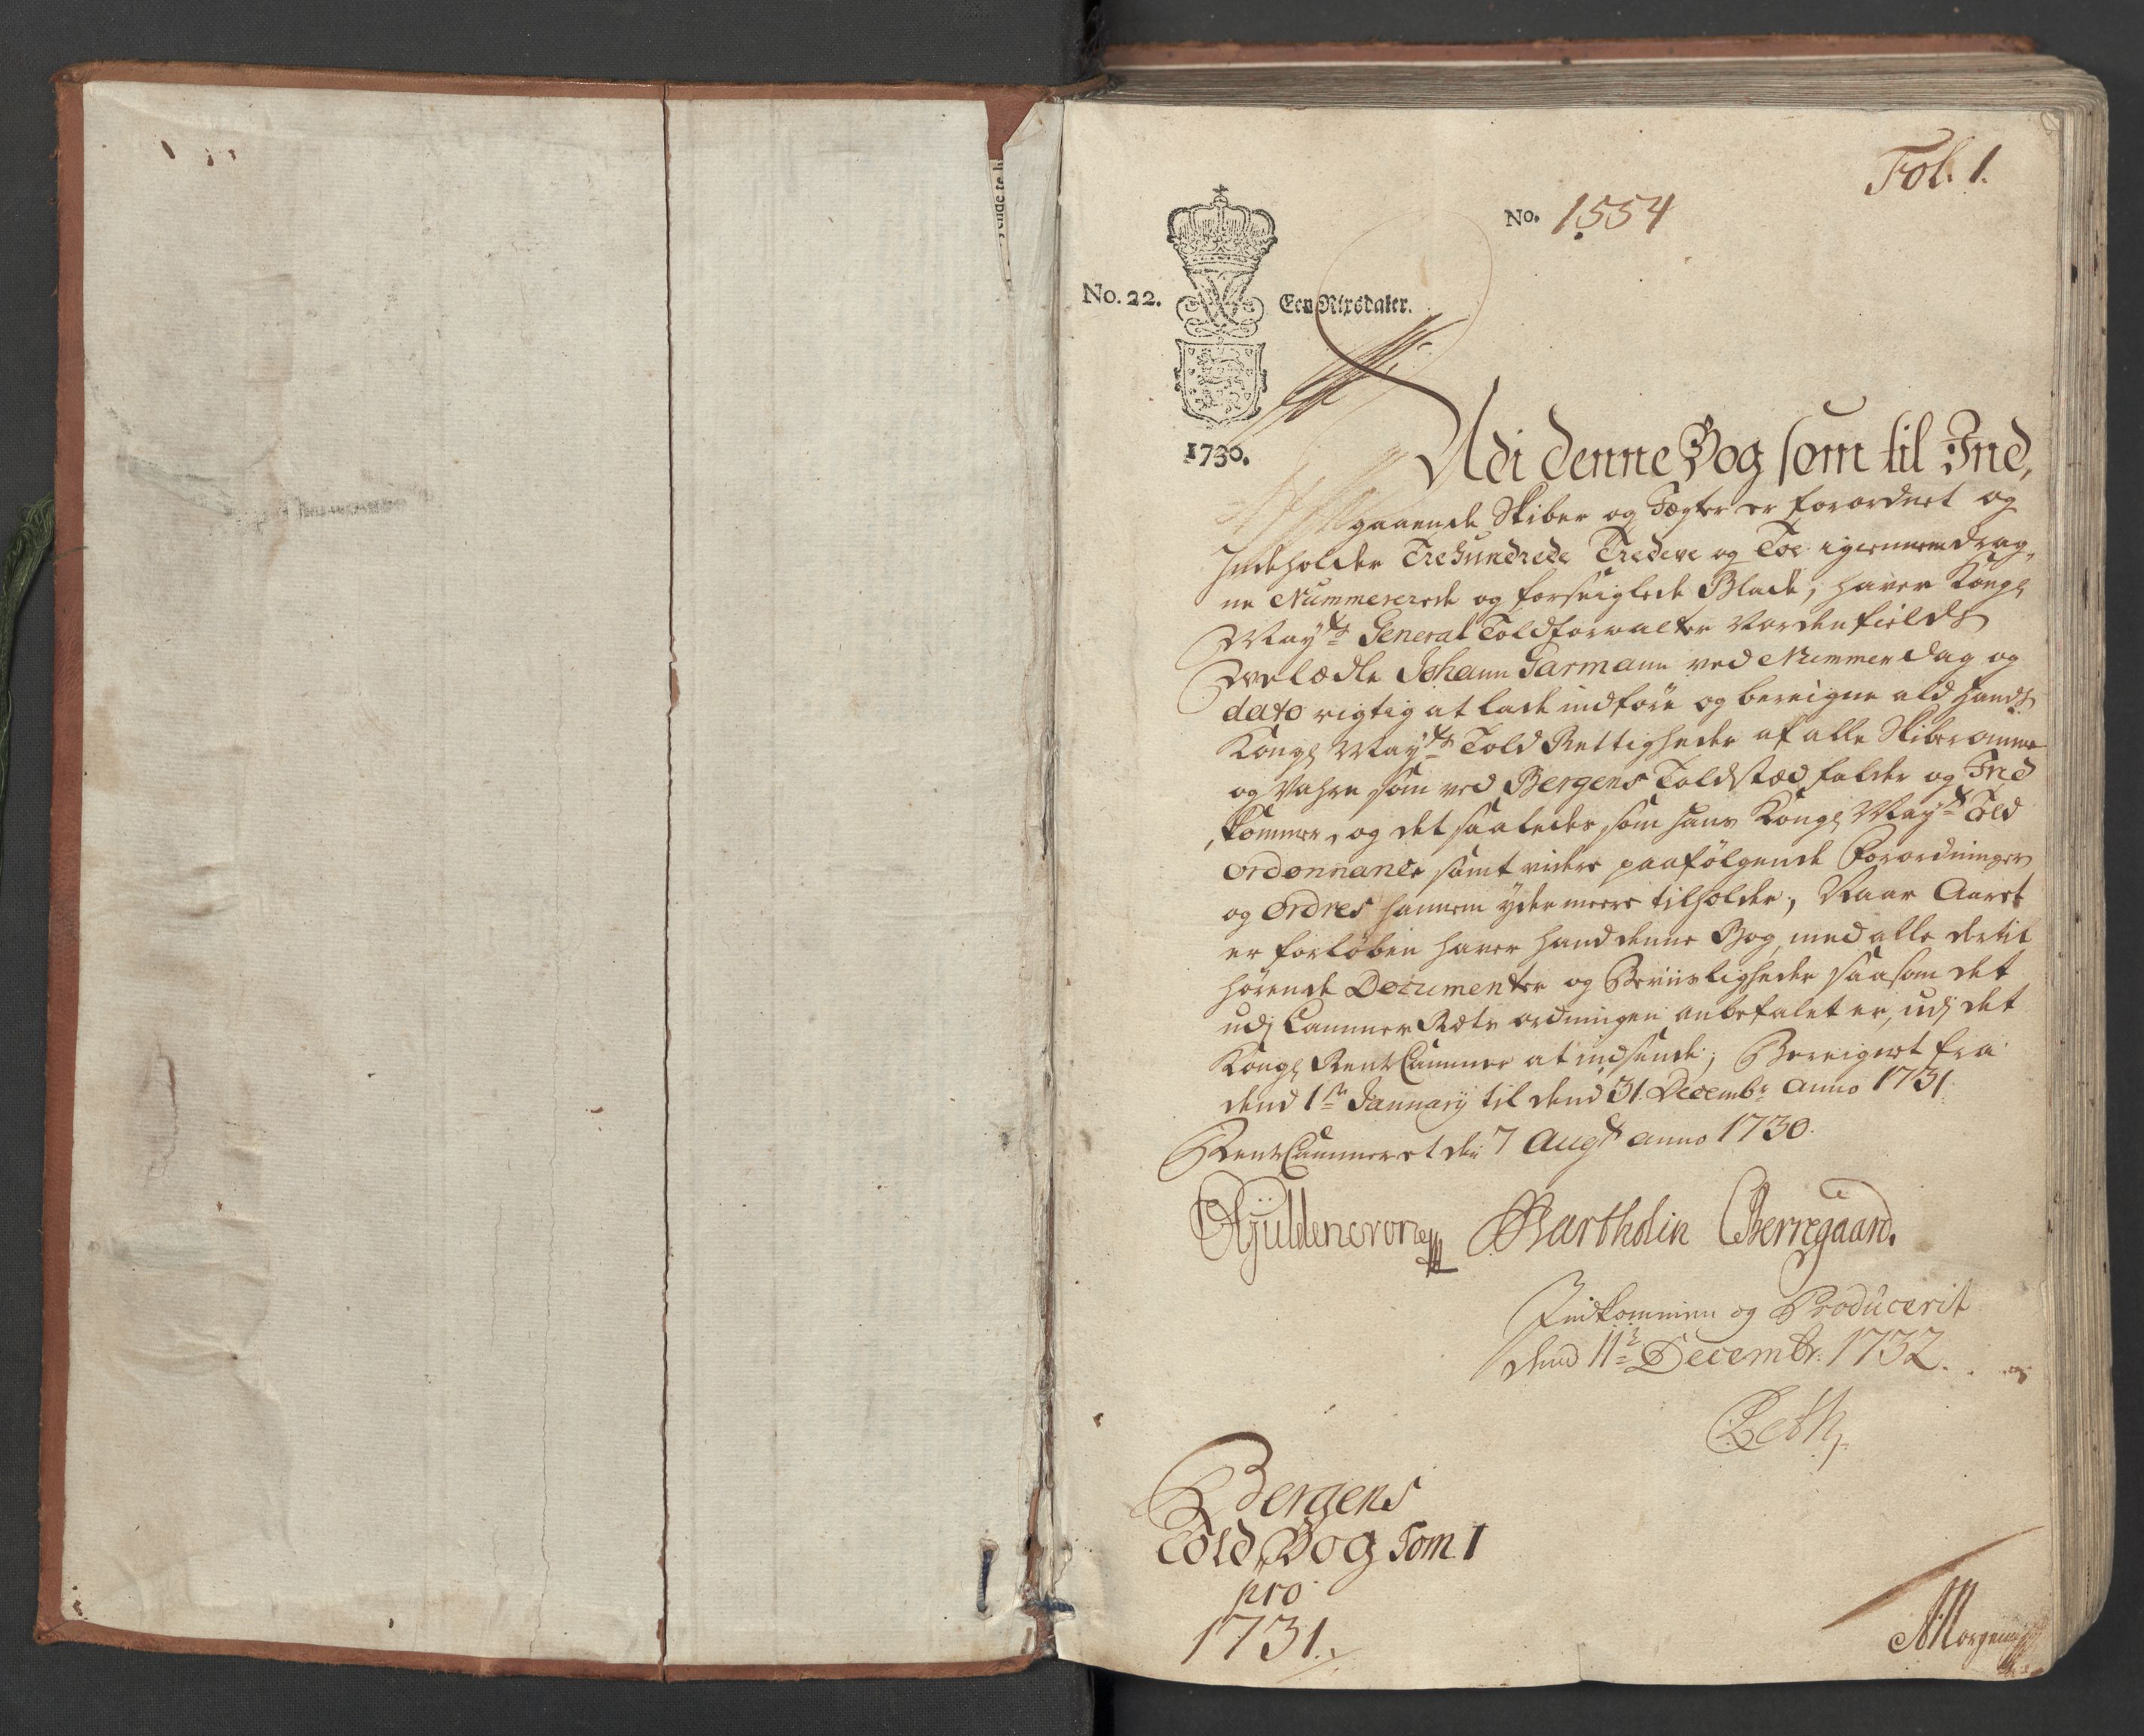 Fol. 1.
No. 1554
No. 22.
Een Rixsdaler.
1730.
Udi denne Bog som til Ind,
gaaende Skiber og Fægter er forordnet og
Indeholder Trehundrede Tredeve og Toe igiennemdrag,
ne Nummererede og forseiglede Blade, haver Kongl
Mayts General Toldforvalter Nordenfields
Velædle Johann Garmann ved Nummer dag og
dato rigtig at lade indföre og bereigne ald hands
Kongl Mayts Told Rettigheder af alle Skiberomme
og Vahre som ved Bergens Toldstæd falder og Ind
kommer, og det saaledes som hans Kongl Mayts Told
ordonnance samt videre paafölgende Forordninger
og Ordres hannem ydermeere tilholder, Naar Aaret
er forlöben haver hand denne Bog, med alle dertil
hörende Documenter og Beviisligheder saasom det
udj Cammer Rætz ordningen anbefalet er, udj det
Kongl RentCammer at indsende; Bereignet fra
dend 1ste January til dend 31. Decembr Anno 1731.
RentCammeret den 7 Augt anno 1730.
Gyldencrone Bartholin Berregaard.
Indkommen og Producerit
dend 11te Decembr. 1732.
Leth
Bergens
Told Bog Tom. 1
pro
1731.